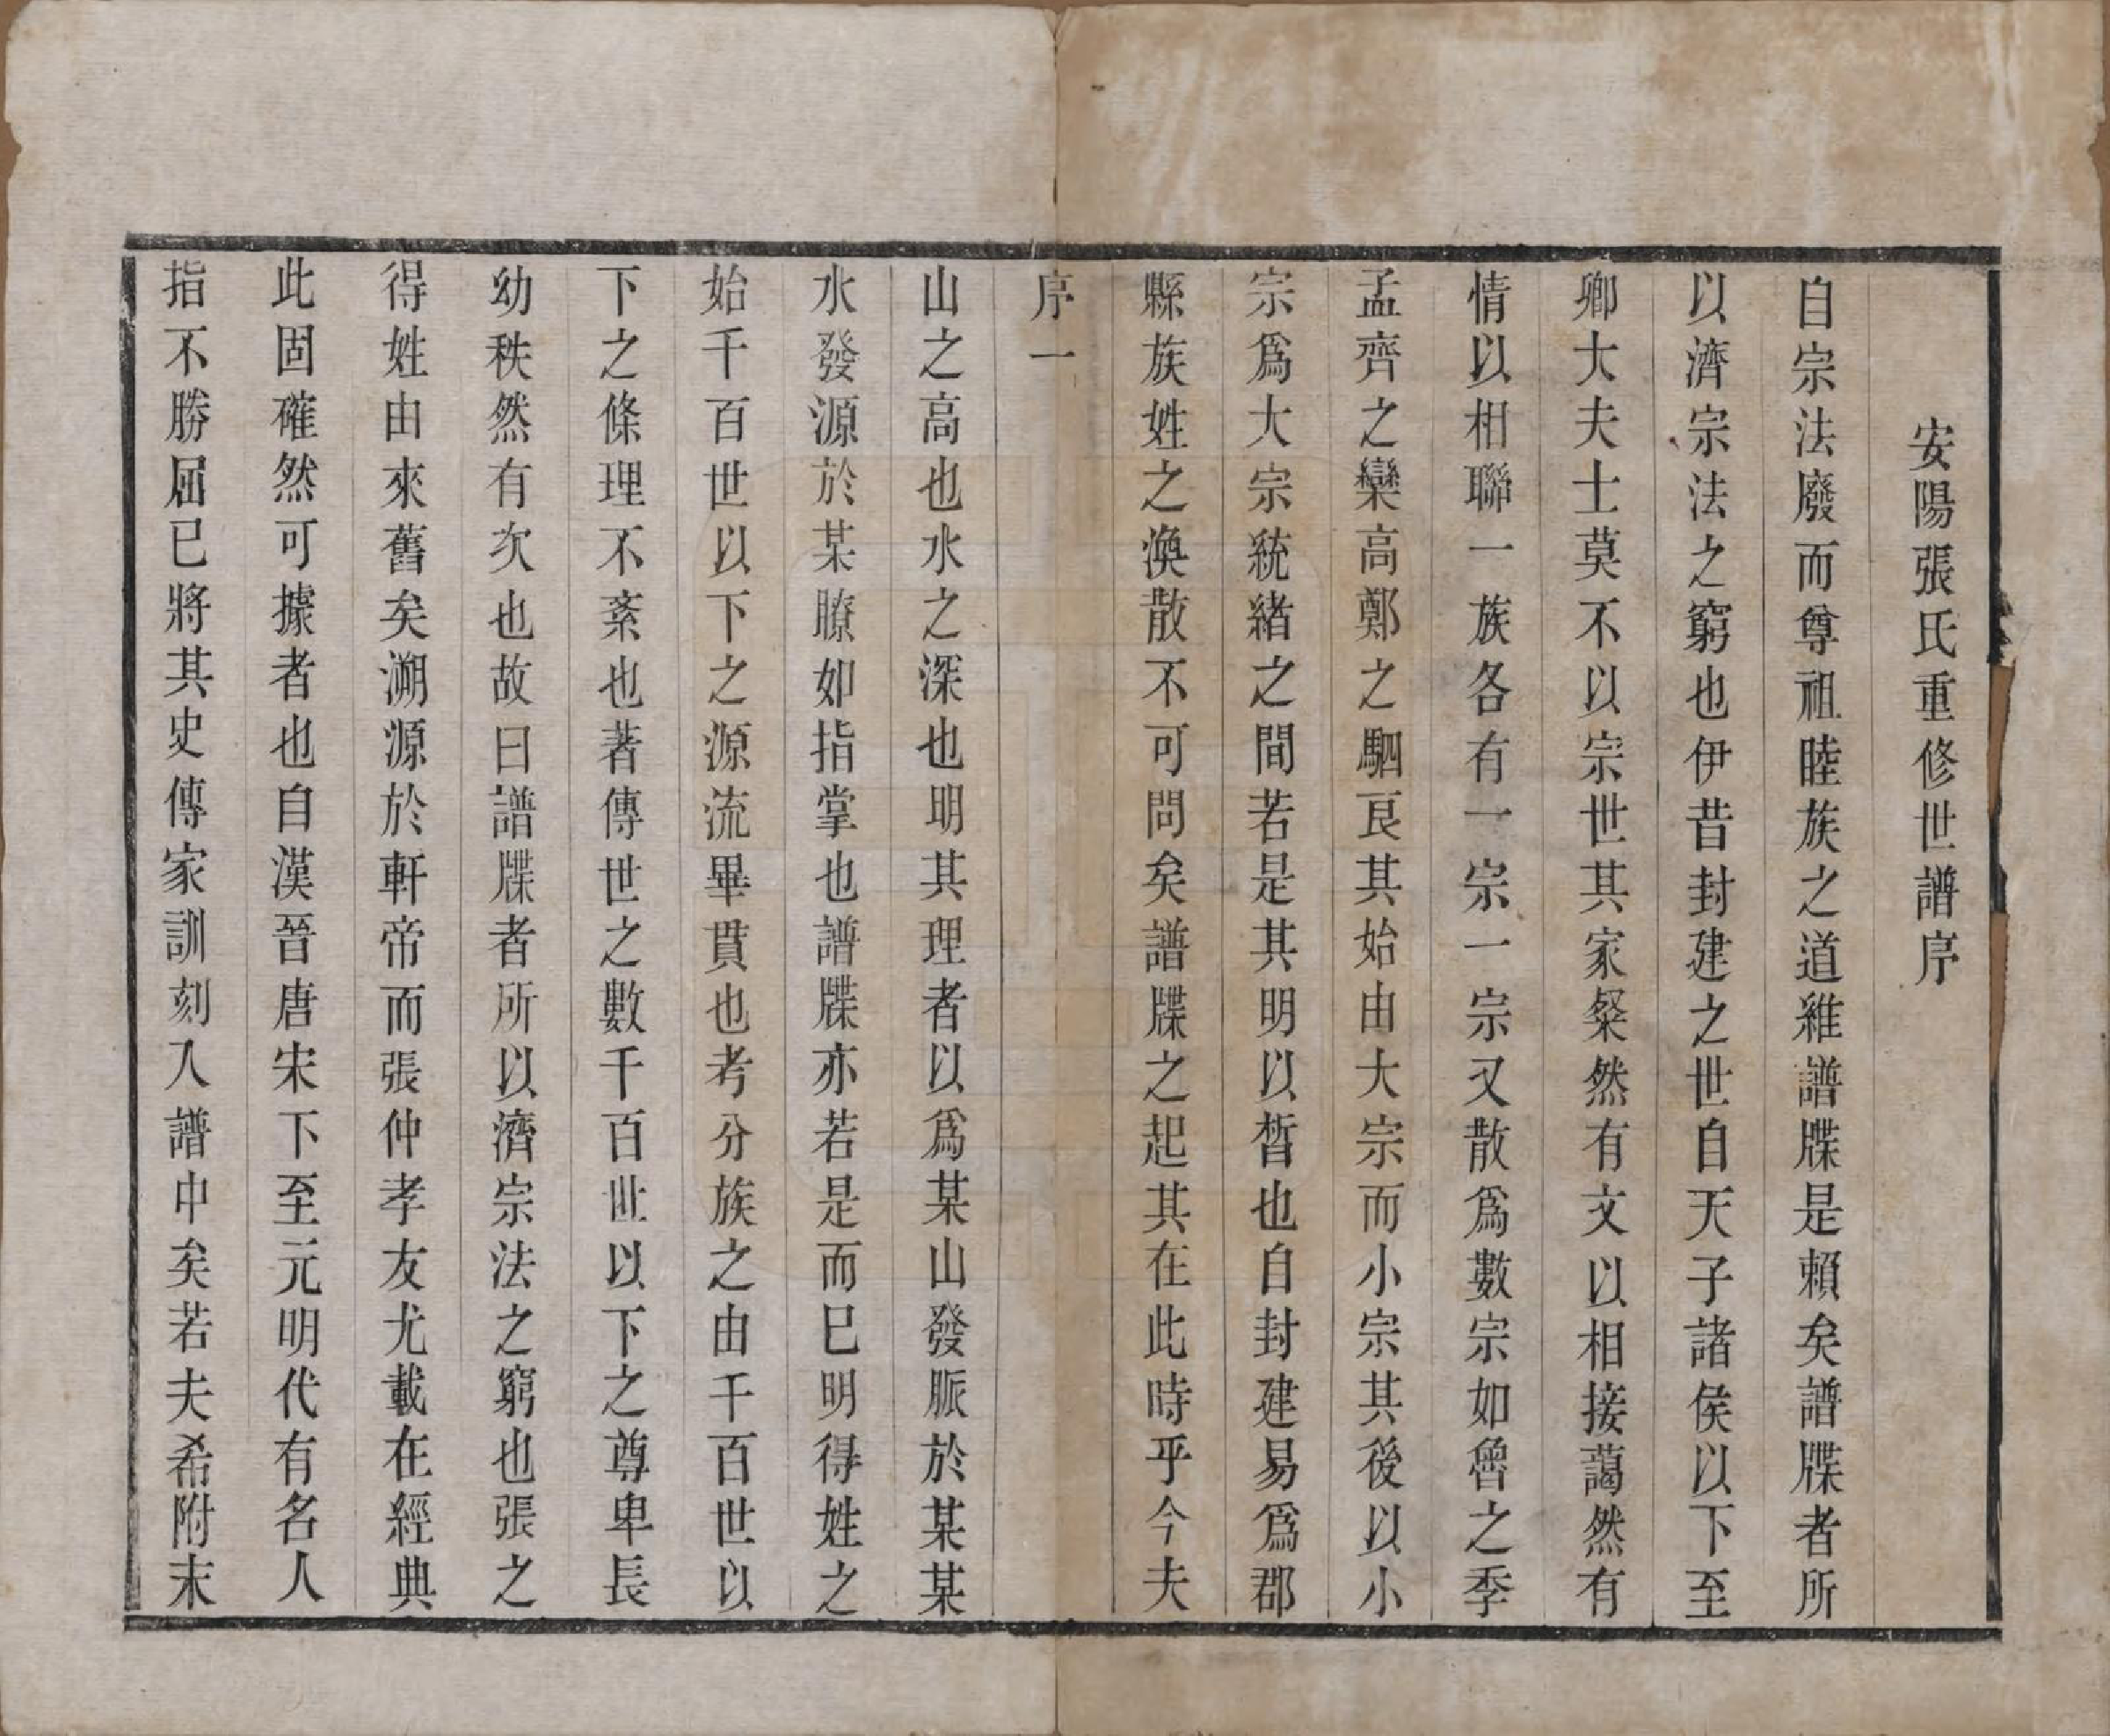 安陽張氏重修世譜序
自宗法廢而尊祖睦族之道維譜牒是賴矣譜牒者所
以濟宗法之窮也伊昔封建之世自天子諸侯以下至
卿大夫士莫不以宗世其家粲然有文以相接藹然有
情以相聯一族各有一宗一宗又散爲數宗如魯之季
孟齊之欒高鄭之駟良其始由大宗而小宗其後以小
宗爲大宗統緒之間若是其明以晳也自封建易爲郡
縣族姓之渙散不可問矣譜牒之起其在此時乎今夫
序一
山之高也水之深也明其理者以爲某山發脈於某某
水發源於某瞭如指掌也譜牒亦若是而已明得姓之
始千百世以下之源流畢貫也考分族之由千百世以
下之條理不紊也著傳世之數千百世以下之尊卑長
幼秩然有次也故曰譜牒者所以濟宗法之窮也張之
得姓由來舊矣溯源於軒帝而張仲孝友尤載在經典
此固確然可據者也自漢晉唐宋下至元明代有名人
指不勝屈已將其史傳家訓刻入譜中矣若夫希附末